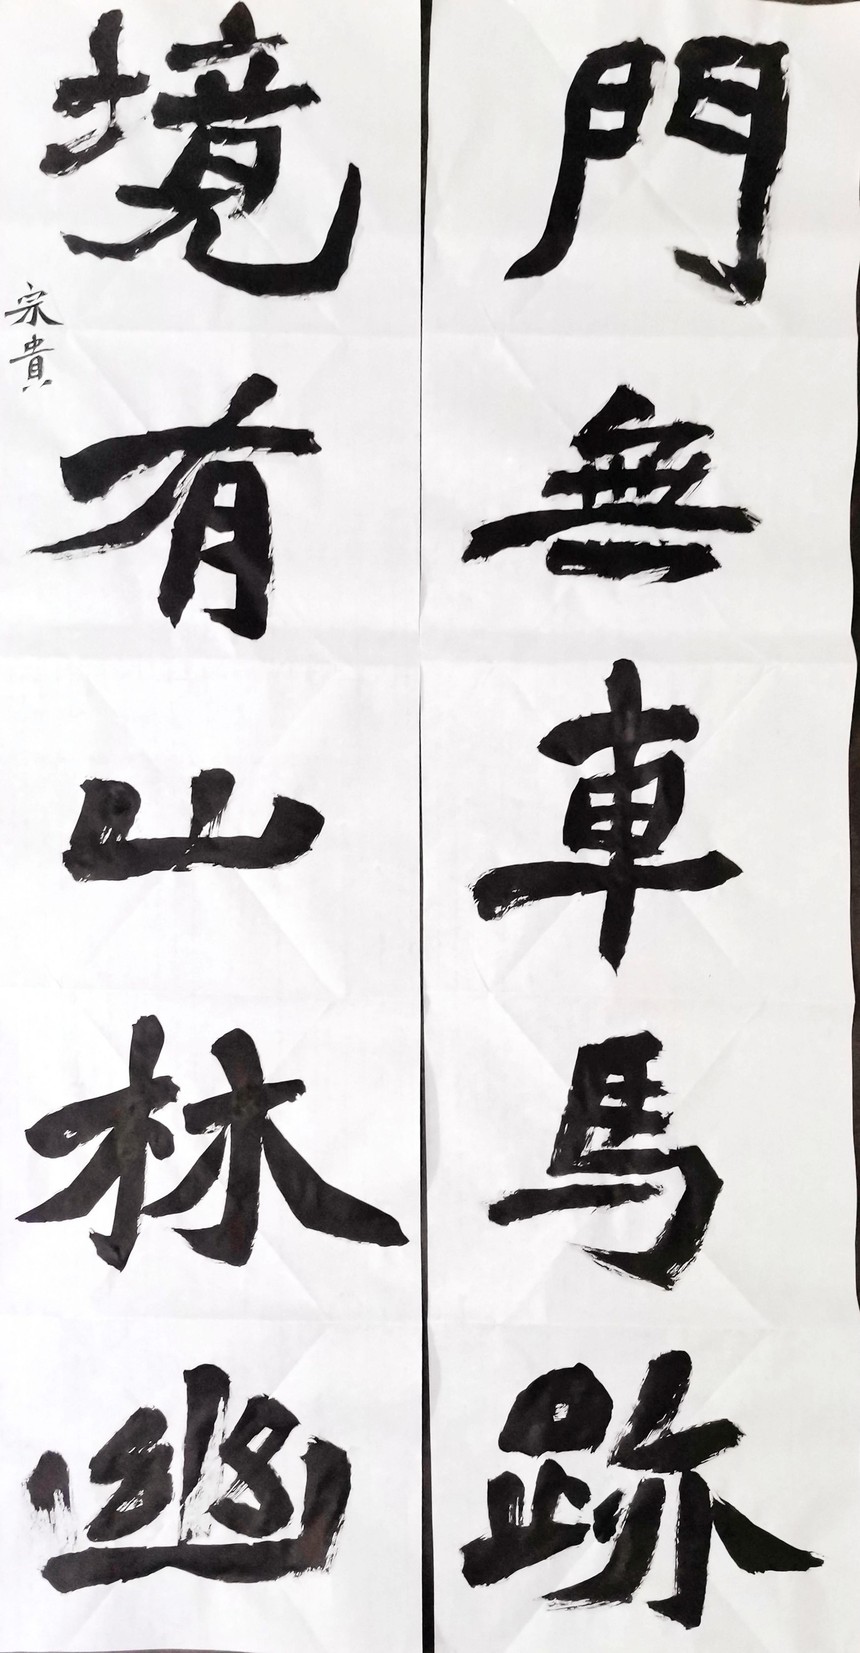 門無車馬跡
境有山林幽
宗貴